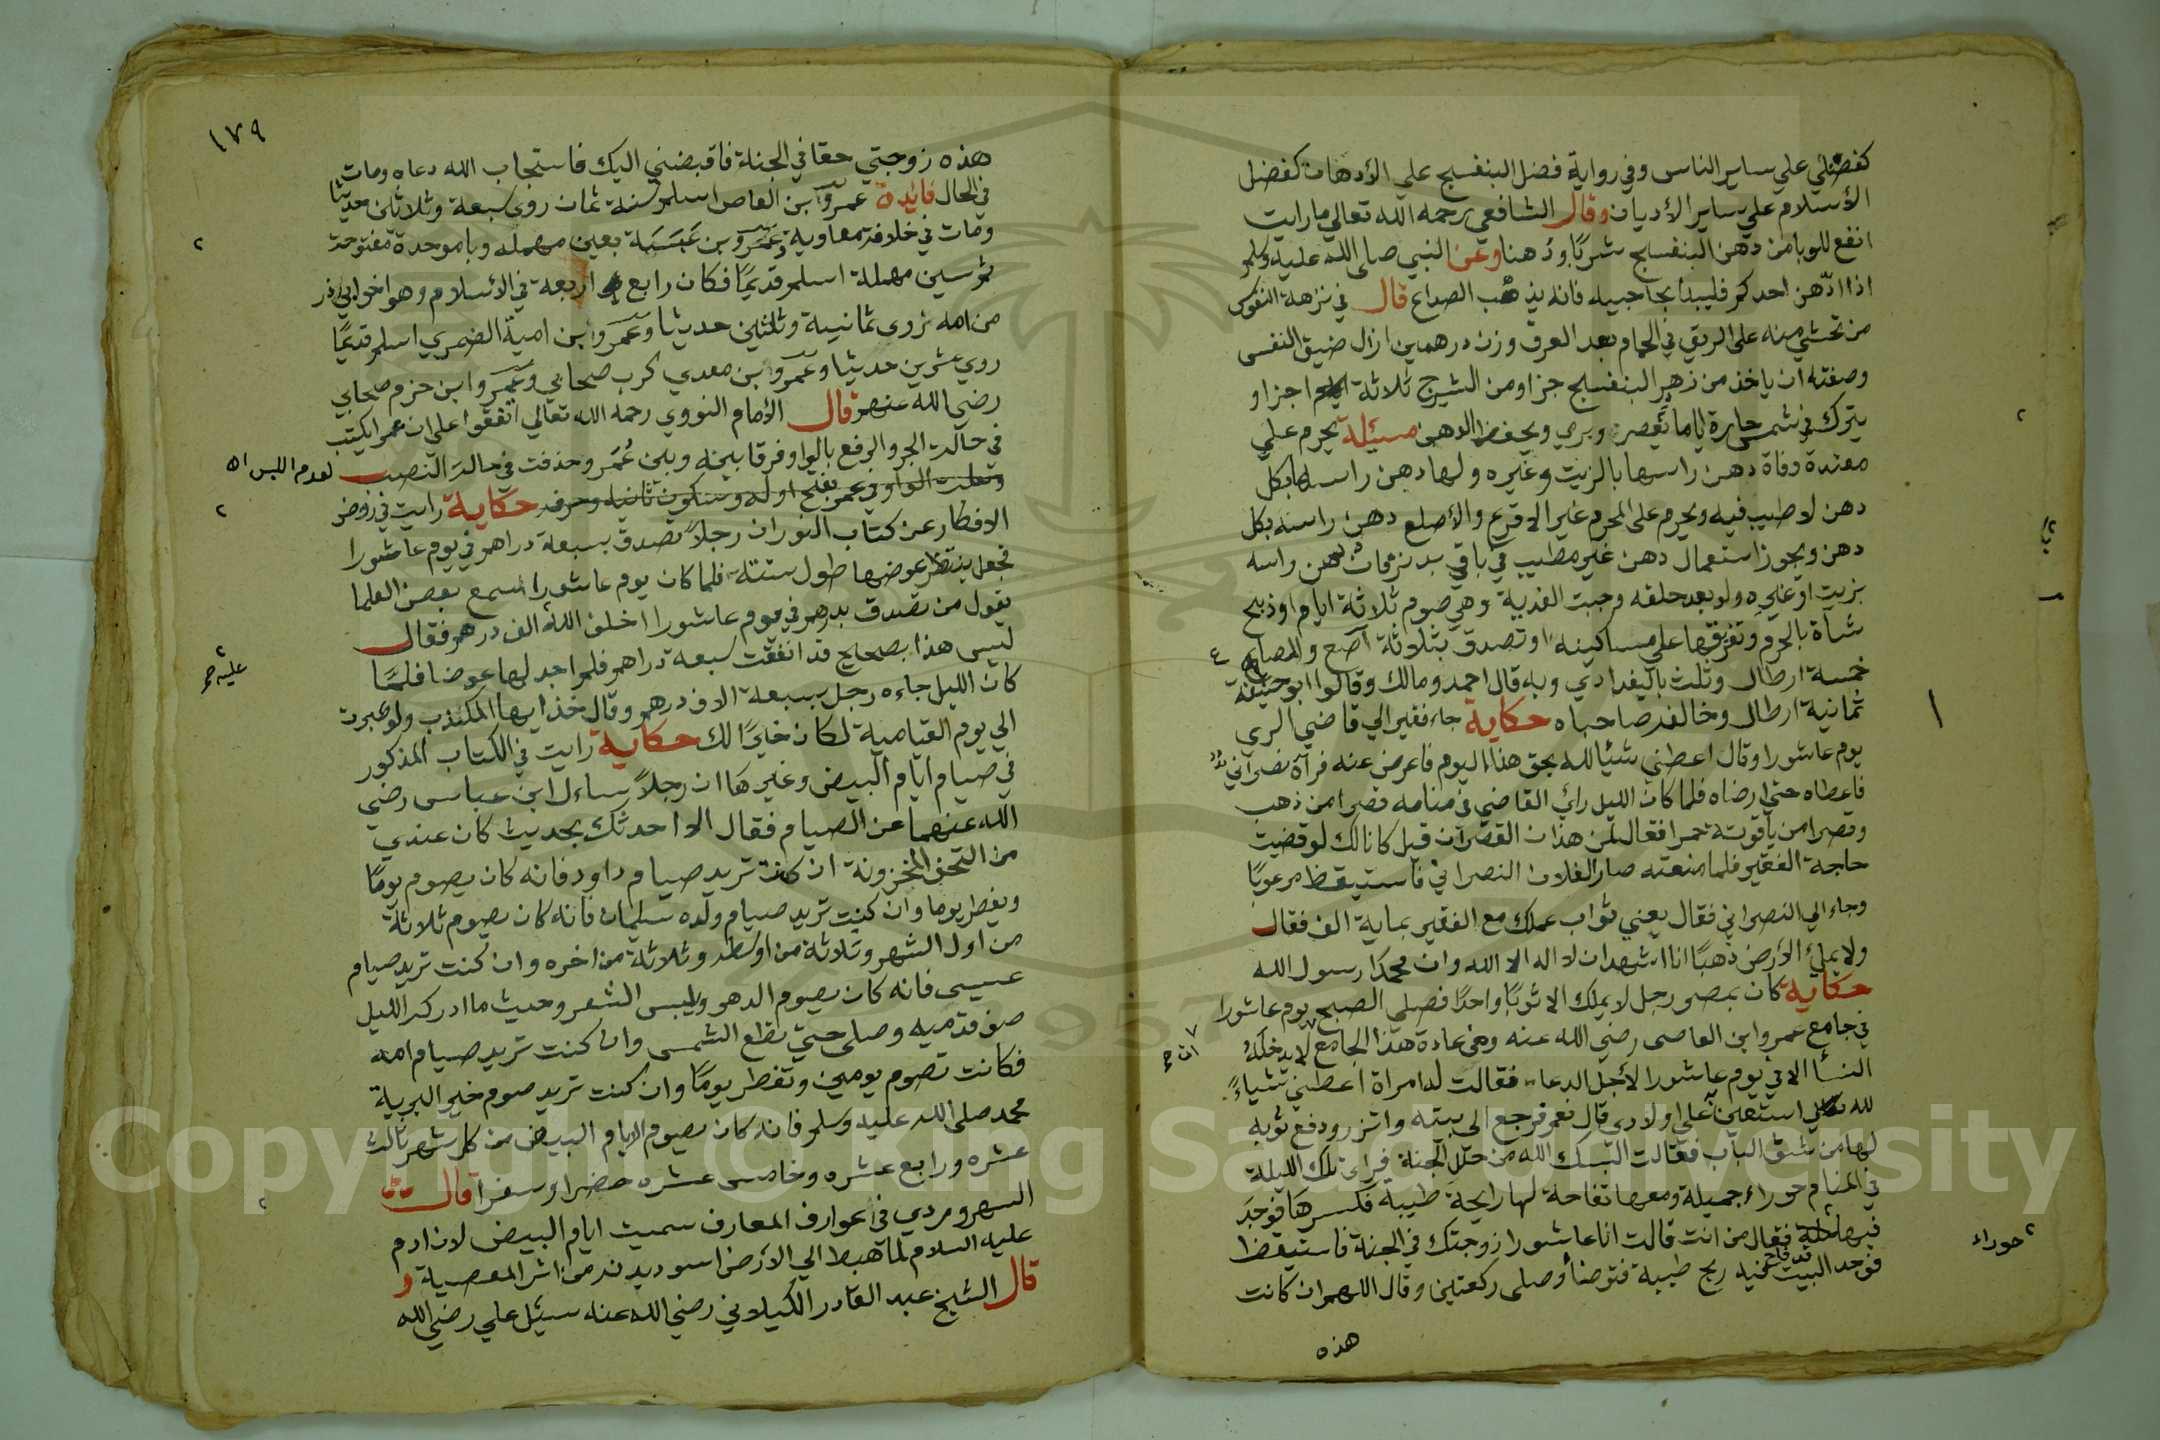 كفضلي علي ساير الناس وفي رواية فضل البنفسج علي الأدهان كفضل
الأسلام علي ساير الأديان وقال الشافعي رحمه الله تعالي ما رايت
انفع للوبا من دهن البنفسج شربًا ودهنا وعن النبي صلي الله عليه وسلم
اذا ادّهن احدكم فليبدأ بحاجبيه فانه يذهب الصداع قال في نزهة النفوس
من تحسّي منه على الريق في الحمام بعد العرق وزن درهمين ازال ضيق النفس
وصفته ان ياخذ من زهر البنفسج جزا ومن الشيرج ثلاثة اجزا و
يترك في شمس حارة اياما ثم يعصر ويرمي ويحفظ الدهن مسئلة يحرم علي
معتدة وفاة دهن راسها بالزيت وغيره ولها دهن راسها بكل
دهن لا طيب فيه ويحرم على المحرم غير الاقرع والأصلع دهن راسه بكل
دهن ويجوز استعمال دهن غير مطيب في باقي بدنه فان دهن راسه
بزيت او غيره ولو بعد حلقه وجبت الفدية وهي صوم ثلاثة ايام او ذبح
شاة بالحرم وتفرقها علي مساكينه او تصدق بثلاثة آصع والصاع
خمسة ارطال وثلث بالبغدادي وبه قال احمد ومالك وقالوا ابو حنيفة
ثمانية ارطال وخالفه صاحباه حكاية جاء فقير الي قاضي الري
يوم عاشورا وقال اعطني شيًا لله بحق هذا اليوم فاعرض عنه فرآه نصراني
فاعطاه حتي ارضاه فلما كان الليل راي القاضي في منامه قصرا من ذهب
وقصرا من ياقوتة حمرا فقال لمن هذان القصران قيل كانا لك لو قضيت
حاجة الفقير فلما منعته صارا لفلان النصراني فاستيقظ مرعوبًا
وجاء الي النصراني فقال بعني ثواب عملك مع الفقير بماية الف فقال
ولا بملئ الأرض ذهبًا انا اشهد ان لا اله الا الله وان محمدًا رسول الله
حكاية كان بمصر رجل لا يملك الا ثوبًا واحدًا فصلى الصبح يوم عاشورا
في جامع عمرو ابن العاصي رضي الله عنه ومن عادة هذا الجامع لا يدخله
النسأ الا في يوم عاشورا لأجل الدعاء فقالت له امراة اعطني شياءً
لله استعين به علي اولادي قال نعم فرجع الى بيته واتزر ودفع ثوبه
لها من شق الباب فقالت البسك الله من حلل الجنة فراى تلك الليلة
في المنام حوراء جميلة ومعها تفاحة لها رايحة طيبة فكسرها فوجد
فيها حلة فقال من انت قالت انا عاشورا زوجتك في الجنة فاستيقظ
فوجد البيت قد فاح فيه ريح طيبة فتوضأ وصلى ركعتين وقال اللهم ان كانت
هذه
حوراء
١٧٩
هذه زوجتي حقا في الجنة فاقبضني اليك فاستجاب الله دعاه ومات
في الحال فايدة عمرو ابن العاص اسلم سنة ثمان روي سبعة وثلاثين حديثا
ومات في خلافة معاوية وعمرو بن عبسة بعين مهمله وبا موحدة مفتوحة
ثم سين مهملة اسلم قديمًا فكان رابع اربعة في الأسلام وهو اخو ابي ذر
من امه روى ثمانية وثلثين حديثا وعمرو ابن امية الضمري اسلم قديمًا
روي عشرين حديثا وعمرو ابن معدي كرب صحابي وعمرو ابن حزم صحابي
رضي الله عنهم قال الأمام النووي رحمه الله تعالي اتفقوا علي ان عمرا يكتب
في حالت الجر والرفع بالواو فرقا بينه وبين عُمَر وحذفت في حالة النصب
لعدم اللبس اه
وجعلت الواو في عمرو بفتح اوله وسكون ثانيه حكاية رايت في روض
الافكار عن كتاب النوران رجلاً تصدق بسبعة دراهم في يوم عاشورا
فجعل ينتظر عوضها طول سنته فلما كان يوم عاشورا سمع بعض العلما
يقول من تصدق بدرهم في يوم عاشورا اخلف الله الف درهم فقال
ليس هذا بصحيح قد انفقت سبعة دراهم فلم اجد لها عوضا فلمّا
كان الليل جاءه رجل بسبعة الاف درهم وقال خذ ايها المكذب ولو صبرت
الي يوم القيامة لكان خيرًا لك حكاية رايت في الكتاب المذكور
في صيام ايام البيض وغيرها ان رجلاً ساءل ابن عباس رضي
الله عنهما عن الصيام فقال الا احدثك بحديث كان عندي
من التحف المخزونة ان كنت تريد صيام داود فانه كان يصوم يومًا
ويفطر يوما وان كنت تريد صيام ولده سليمان فانه كان يصوم ثلاثة
من اول الشهر وثلاثة من اوسطه وثلاثة من اخره وان كنت تريد صيام
عيسى فانه كان يصوم الدهر ويلبس الشعر وحديث ما ادركه الليل
صف قدميه وصلى حتي تطلع الشمس وان كنت تريد صيام امه
فكانت تصوم يومين وتفطر يومًا وان كنت تريد صوم خير البرية
محمد صلى الله عليه وسلم فانه كان يصوم الايام البيض من كل شهر ثالث
عشره ورابع عشره وخامس عشره حضرا وسفرا قال
السهروردي في عوارف المعارف سميت ايام البيض لان ادم
عليه السلام لما هبط الي الأرض اسود بدنه من اثر المعصية و
قال الشيخ عبد القادر الكيلاني رضي الله عنه سئل علي رضي الله
Copyright © King Saud University
1957